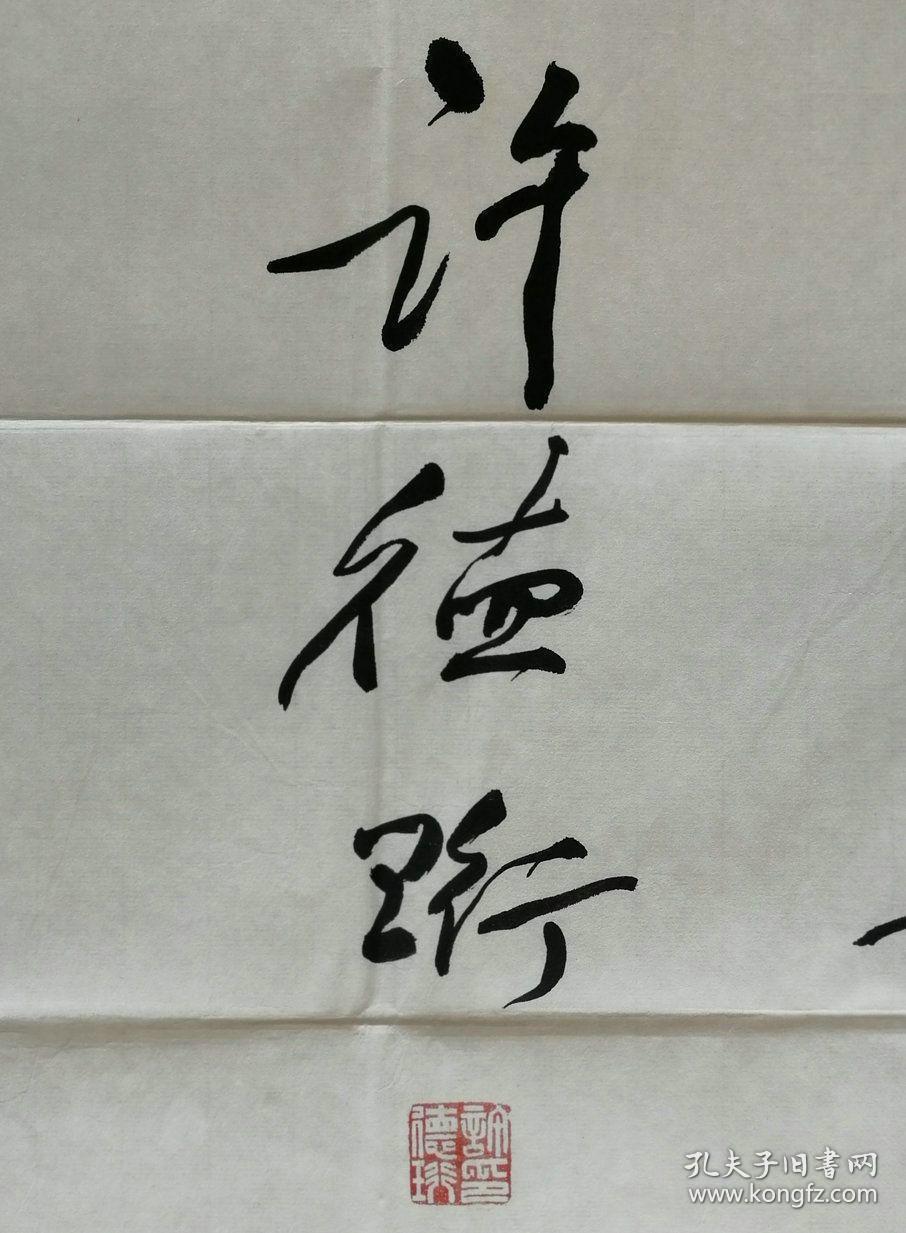 许德珩
許印
德珩
孔夫子旧书网
www.kongfz.com